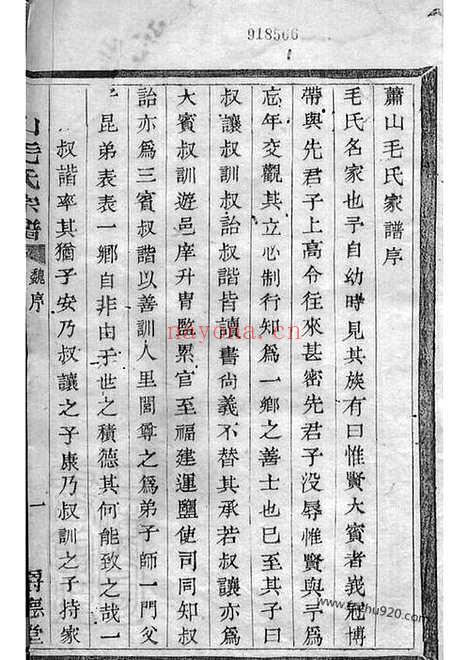 918566
蕭山毛氏家譜序
毛氏名家也予自幼時見其族有曰惟賢大賓者峩冠博
帶與先君子上高令往來甚密先君子没辱惟賢與予為
忘年交觀其立心制行知為一鄉之善士也巳至其子曰
叔讓叔訓叔詒叔諧皆讀書尚義不替其承若叔讓亦為
大賓叔訓遊邑庠升胄監累官至福建運鹽使司同知叔
詒亦為三賓叔諧以善訓人里閭尊之為弟子師一門父
昆弟表表一鄉自非由于世之積德其何能致之哉一
叔諧率其猶子安乃叔讓之子康乃叔訓之子持家
山毛氏宗譜
魏序
一
nayona.cn